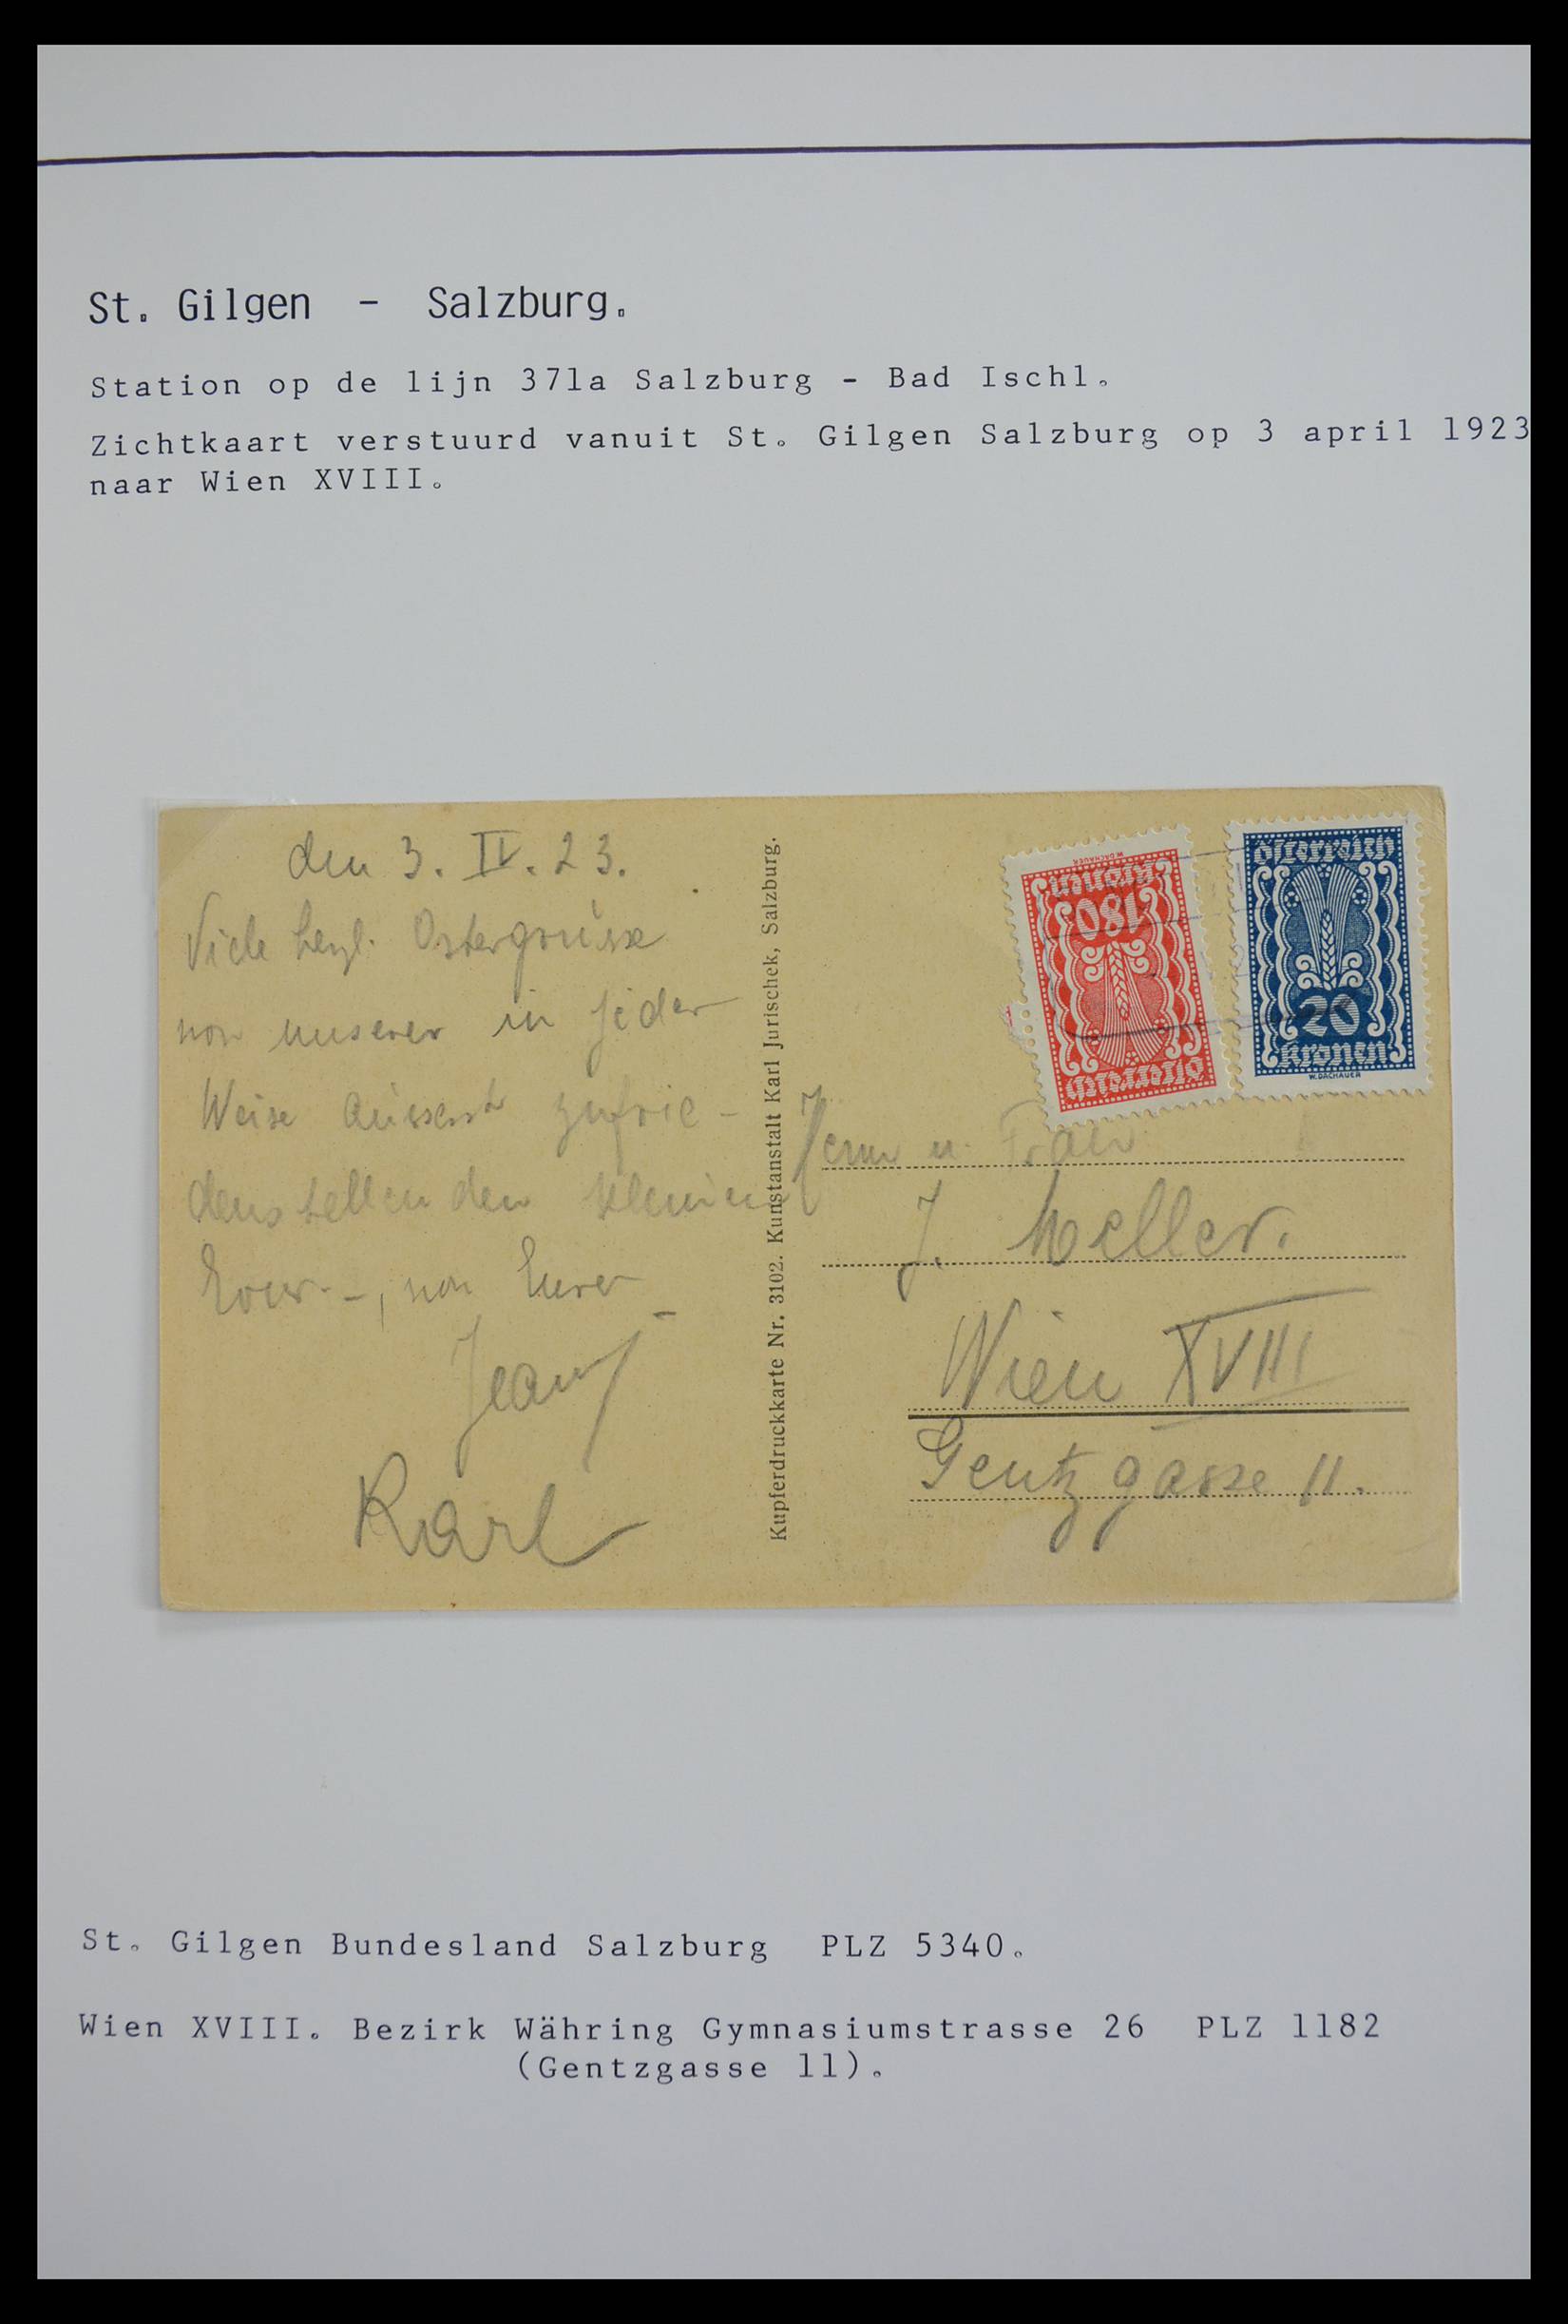 St. Gilgen - Salzburg.
Station op de lijn 371a Salzburg - Bad Ischl.
Zichtkaart verstuurd vanuit St. Gilgen Salzburg op 3 april 1923
naar Wien XVIII.
den 3. IV. 23.
Viele herzl. Ostergrüsse
von unserer in jeder
Weise äusserst zufrie-
denstellenden kleinen
von Eurer
Karl
Kupferdruckkarte Nr. 3102. Kunstanstalt Karl Jurischek, Salzburg.
W.DACHAUER
Kronen
180
Österreich
Österreich
20
Kronen
W.DACHAUER
Herrn u. Frau
J. Meller.
Wien XVIII
Gentzgasse 11.
St. Gilgen Bundesland Salzburg PLZ 5340.
Wien XVIII. Bezirk Währing Gymnasiumstrasse 26 PLZ 1182
(Gentzgasse 11).